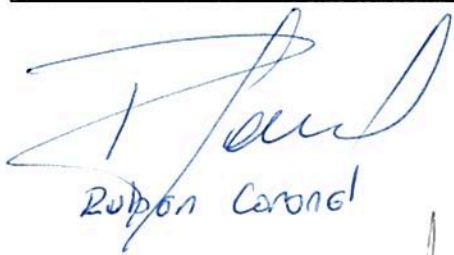 Ruben Coronel